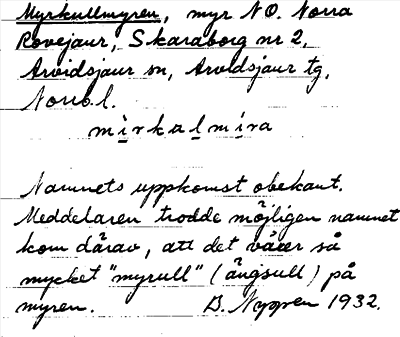 Myrkullmyren, myr NO. Norra
Rovejaur, Skaraborg nr 2,
Arvidsjaur sn, Arvidsjaur tg,
Norrb. l.
mìrkalmíra
Namnets uppkomst obekant.
Meddelaren trodde möjligen namnet
kom därav, att det växer så
mycket "myrull" (ängsull) på
myren. D. Nyppen 1932.